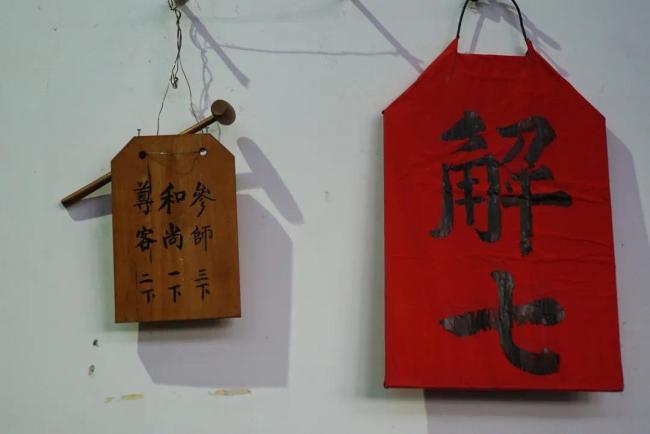 參師三下
和尚一下
尊客二下
解七